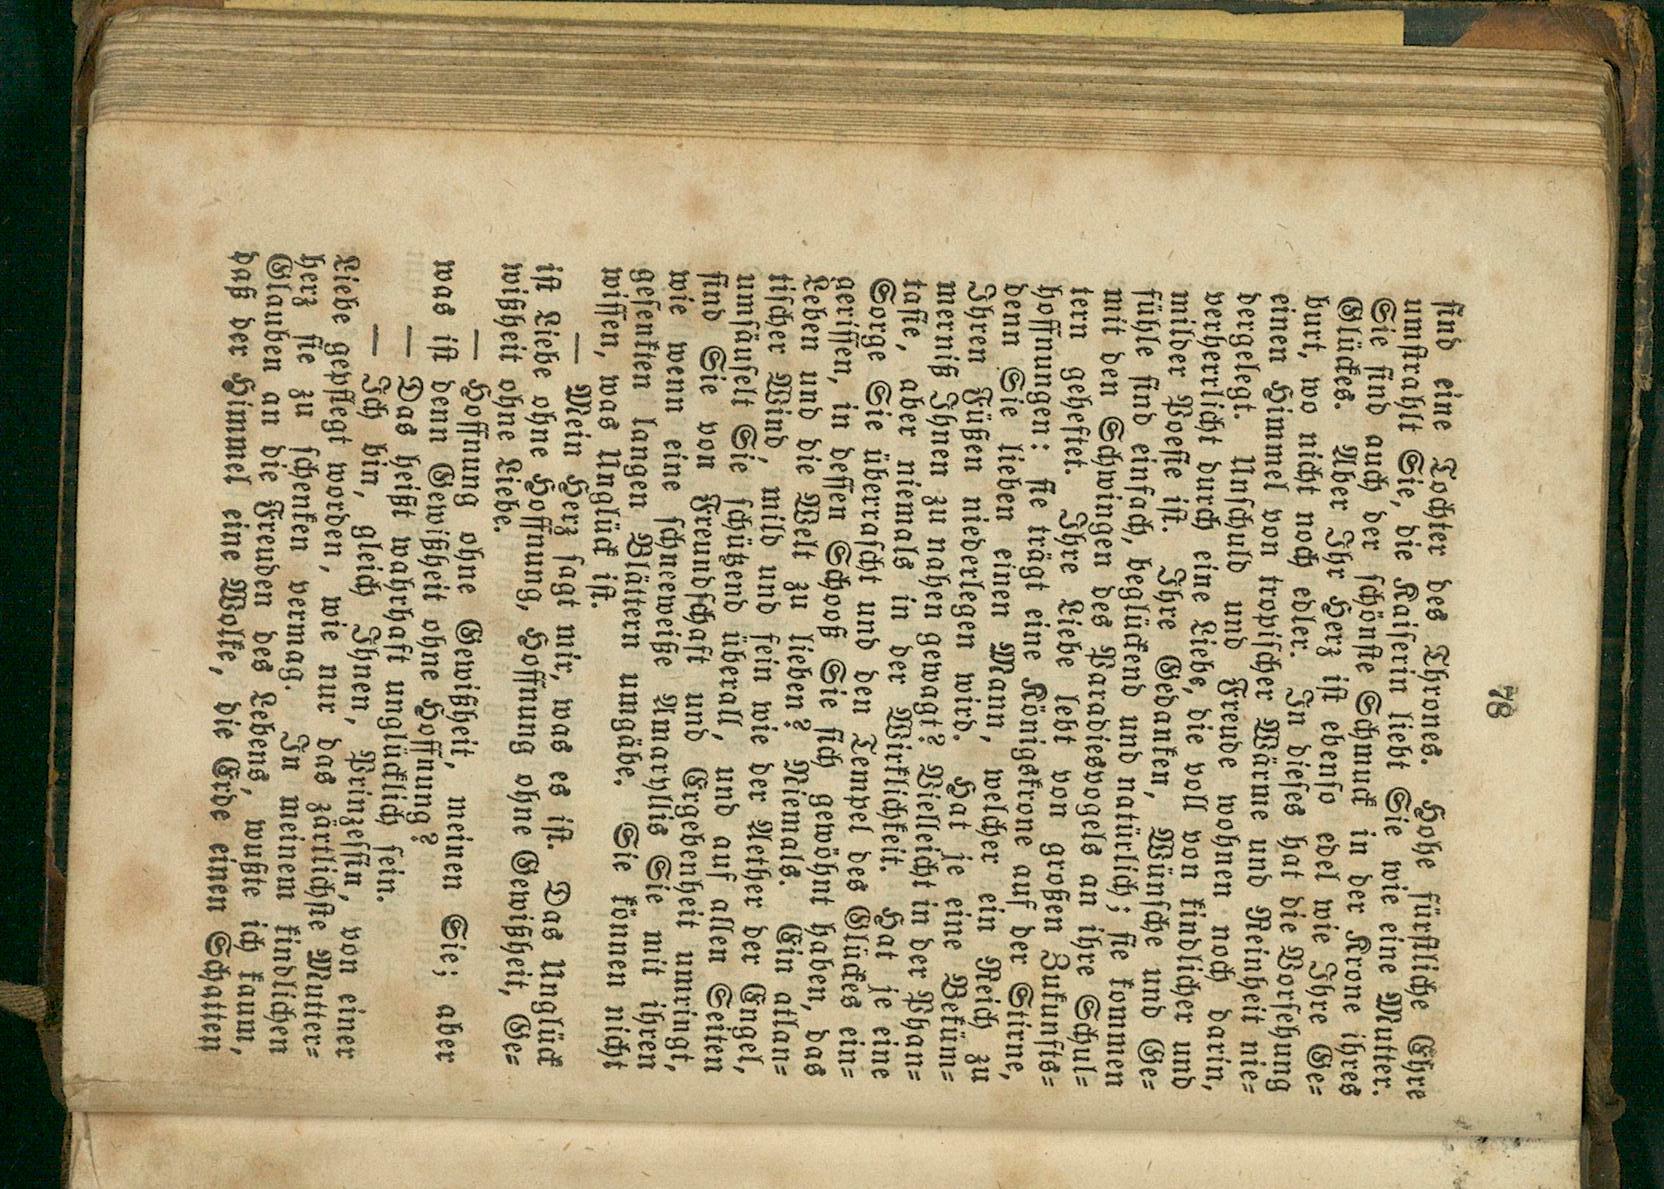 78
sind eine Tochter des Thrones. Hohe fürstliche Ehre
umstrahlt Sie, die Kaiserin liebt Sie wie eine Mutter.
Sie sind auch der schönste Schmuck in der Krone ihres
Glückes. Aber Ihr Herz ist ebenso edel wie Ihre Ge=
burt, wo nicht noch edler. In dieses hat die Vorsehung
einen Himmel von tropischer Wärme und Reinheit nie=
dergelegt. Unschuld und Freude wohnen noch darin,
verherrlicht durch eine Liebe, die voll von kindlicher und
milder Poesie ist. Ihre Gedanken, Wünsche und Ge=
fühle sind einfach, beglückend und natürlich; sie kommen
mit den Schwingen des Paradiesvogels an ihre Schul=
tern geheftet. Ihre Liebe lebt von großen Zukunfts=
hoffnungen: sie trägt eine Königskrone auf der Stirne,
denn Sie lieben einen Mann, welcher ein Reich zu
Ihren Füßen niederlegen wird. Hat je eine Beküm=
merniß Ihnen zu nahen gewagt? Vielleicht in der Phan=
tasie, aber niemals in der Wirklichkeit. Hat je eine
Sorge Sie überrascht und den Tempel des Glückes ein=
gerissen, in dessen Schooß Sie sich gewöhnt haben, das
Leben und die Welt zu lieben? Niemals. Ein atlan=
tischer Wind, mild und fein wie der Aether der Engel,
umsäuselt Sie schützend überall, und auf allen Seiten
sind Sie von Freundschaft und Ergebenheit umringt,
wie wenn eine schneeweiße Amaryllis Sie mit ihren
gesenkten langen Blättern umgäbe. Sie können nicht
wissen, was Unglück ist.
— Mein Herz sagt mir, was es ist. Das Unglück
ist Liebe ohne Hoffnung, Hoffnung ohne Gewißheit, Ge=
wißheit ohne Liebe.
— Hoffnung ohne Gewißheit, meinen Sie; aber
was ist denn Gewißheit ohne Hoffnung?
— Das heißt wahrhaft unglücklich sein.
— Ich bin, gleich Ihnen, Prinzessin, von einer
Liebe gepflegt worden, wie nur das zärtlichste Mutter=
herz sie zu schenken vermag. In meinem kindlichen
Glauben an die Freuden des Lebens, wußte ich kaum,
daß der Himmel eine Wolke, die Erde einen Schatten